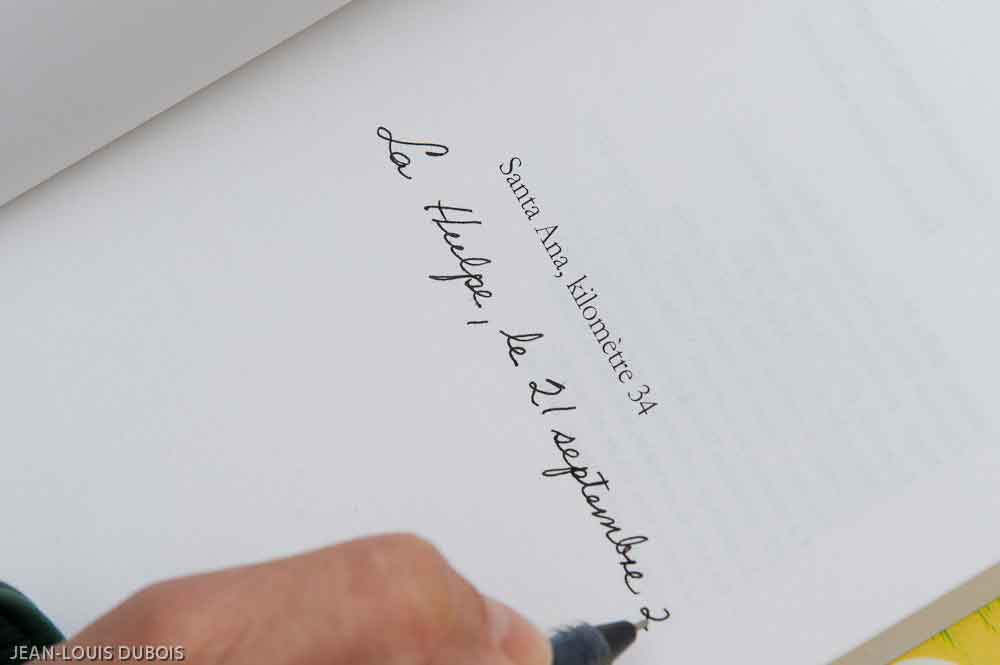 Santa Ana, kilomètre 34
La Hulpe, le 21 septembre 2
JEAN-LOUIS DUBOIS